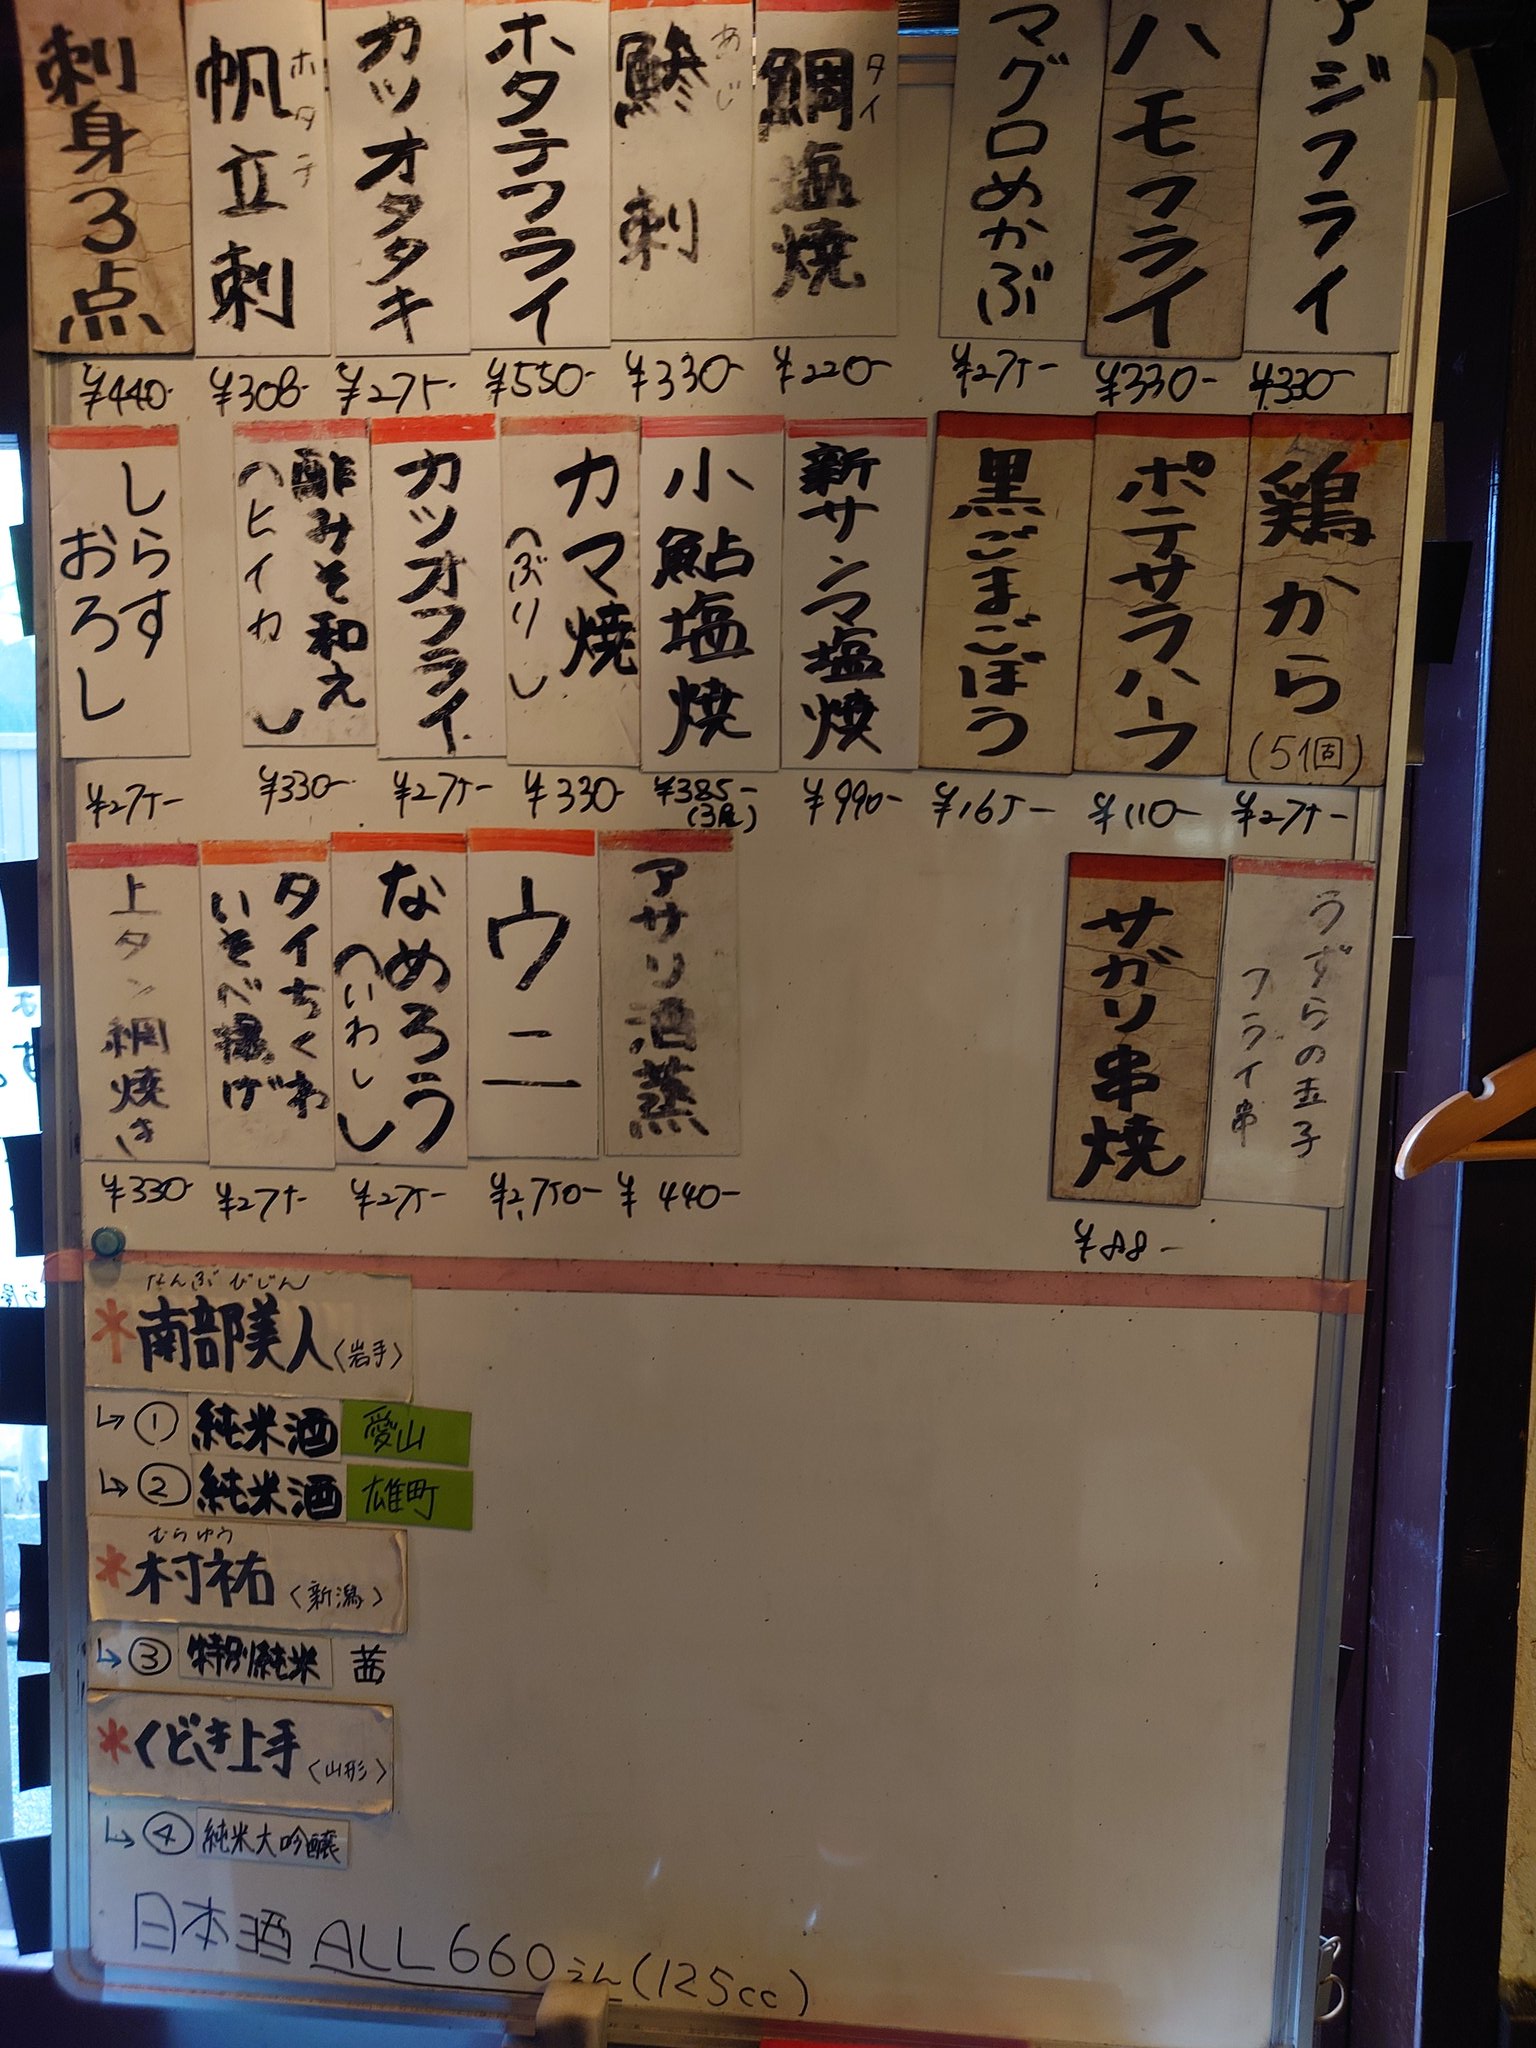 刺身3点
¥440-
帆立刺
ホタテ
¥308-
カツオタタキ
¥275-
ホタテフライ
¥550-
鯵刺
あじ
¥330-
鯛塩焼
タイ
¥220-
マグロめかぶ
¥275-
ハモフライ
¥330-
アジフライ
¥330-
しらす
おろし
¥275-
酢みそ和え
(ヒイカ)
¥330-
カツオフライ
¥275-
カマ焼
(ぶり)
¥330-
小鮎塩焼
¥385-
(3尾)
新サンマ塩焼
¥990-
黒ごまごぼう
¥165-
ポテサラハーフ
¥110-
鶏から
(5個)
¥275-
上タン網焼き
¥330-
タイちくわ
いそべ揚げ
¥275-
なめろう
(いわし)
¥275-
ウニ
¥2,750-
アサリ酒蒸
¥440-
サガリ串焼
¥88-
うずらの玉子
フライ串
なんぶびじん
*南部美人〈岩手〉
↳①純米酒 愛山
↳②純米酒 雄町
むらゆう
*村祐〈新潟〉
↳③特別純米 茜
*くどき上手〈山形〉
↳④純米大吟醸
日本酒 ALL660えん(125cc)